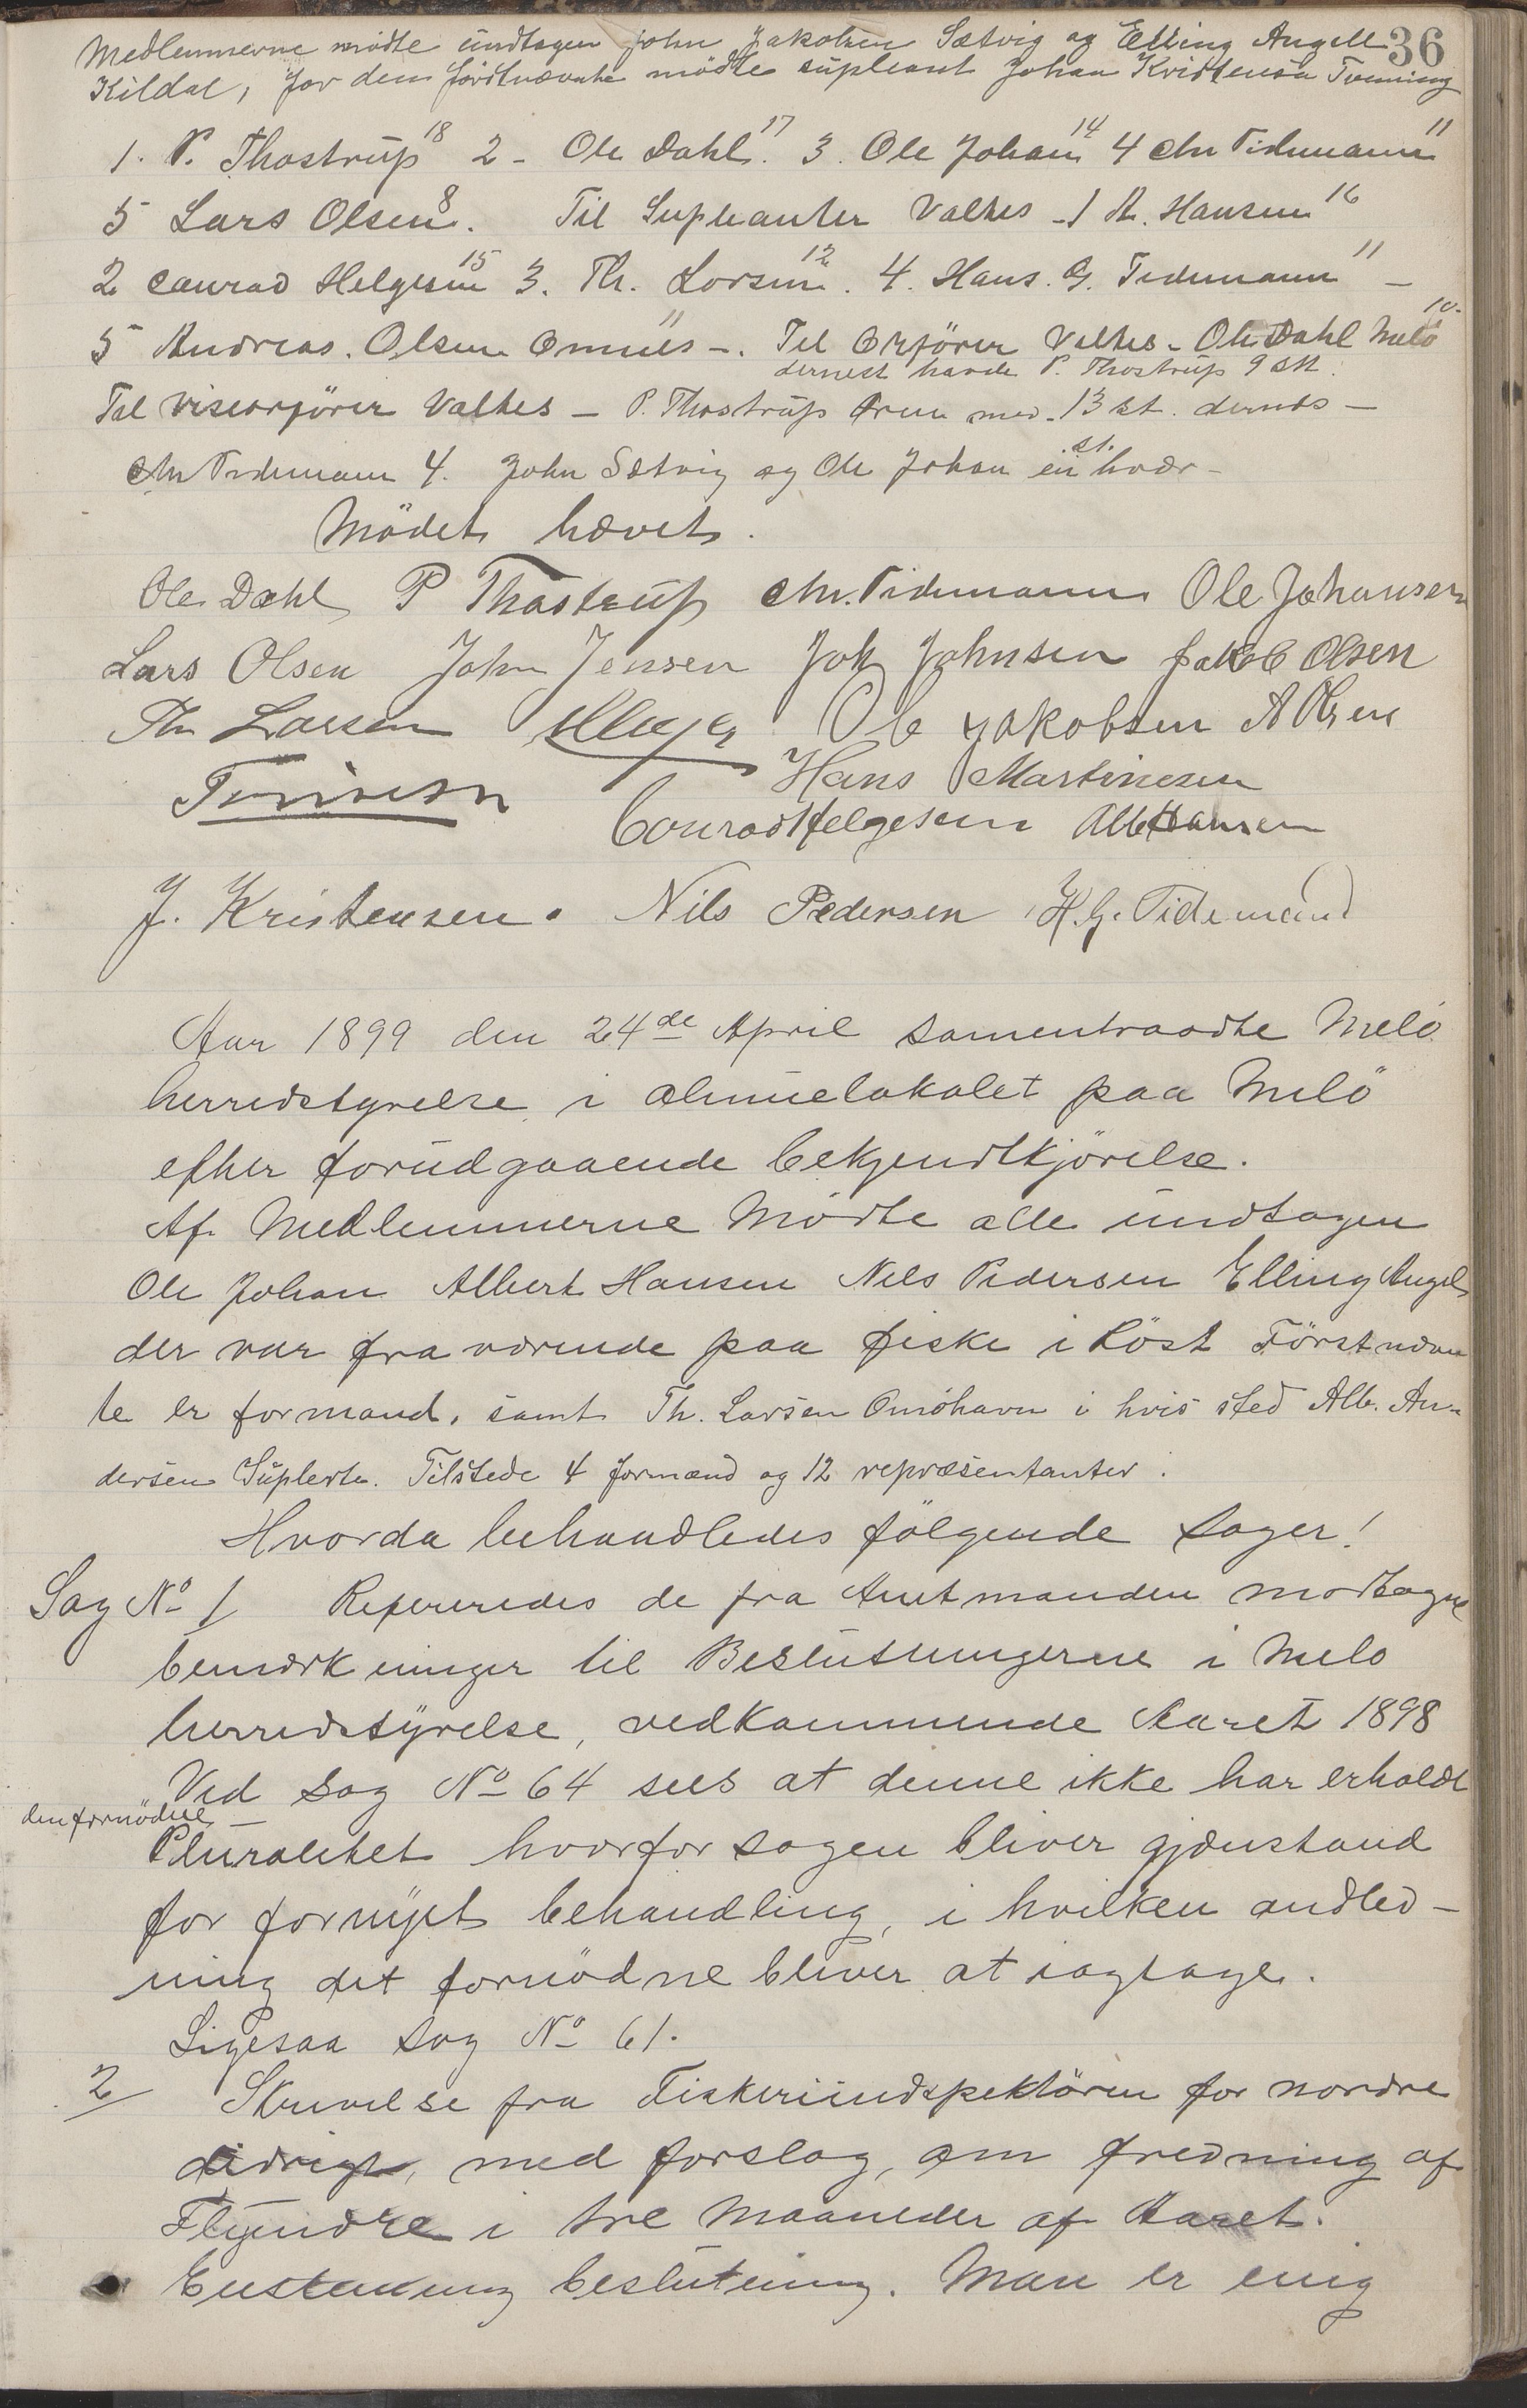 36
Medlemmerne mödte undtagen John Jakobsen Sætvig og Elling Angell
Kildal, for den förstnævnte mödte supleant Johan Kristensen Tonning
1. P. Thostrup 18 2 - Ole Dahl 17. 3. Ole Johan 14 4 Chr Tidemann 11
5 Lars Olsen 8. Til Supleanter Valtes - 1 A. Hansen 16
2 Conrad Helgesen 15 3. Th. Larsen 12. 4. Hans. G. Tidemann 11 -
5 Andreas. Olsen Omnes 11 -. Til Orförer Valtes - Ole Dahl Melö 10.
dernest havde P. Thostrup 9 st.
Til viseorförer Valtes - P. Thostrup Ørnes med - 13 st. dernes -
Chr Tidemann 4. John Sætvig og Ole Johan en st. hvær -
Mödet hævet.
Ole Dahl P Thostrup Chr. Tidemann Ole Johansen
Lars Olsen John Jensen Joh Johnsen Jakob Olsen
Th Larsen Ole Jakobsen A Olsen
Hans Martinesen
Conrad Helgesen Alb Hansen
J. Kristensen. Nils Pedersen H. G. Tidemand
Aar 1899 den 24de April samentraadte Melö
herredstyrelse i almuelokalet paa Melö
efter forudgaaende bekjendtkjörelse.
Af Medlemmerne Mödte alle undtagen
Ole Johan Albert Hansen Nels Pedersen Elling Angel
der var fraværende paa fiske i Röst Förstnævn
te er formand, samt Th. Larsen Omöhavn i hvis sted Alb. An-
dersen Suplerte. Tilstede 4 formænd og 12 repræsentanter.
Hvorda behandledes fölgende sager!
Sag No 1/ Refereredes de fra Amtmanden modtagne
bemærkninger til Beslutningerne i Melö
herredstyrelse, vedkommende Aaret 1898
Ved sag No 64 sees at denne ikke har erholdt
den fornödne
Pluralitet hvorfor sagen bliver gjenstand
for fornyet behandling, i hvilken andled-
ning det fornödne bliver at iagtage.
Ligesaa sag No 61.
2/ Skrivelse fra Fiskeriindspektören for nordre
distrigt, med forslag, om fredning af
Flyndre i tre Maaneder af Aaret.
Enstemmig beslutning. Man er enig